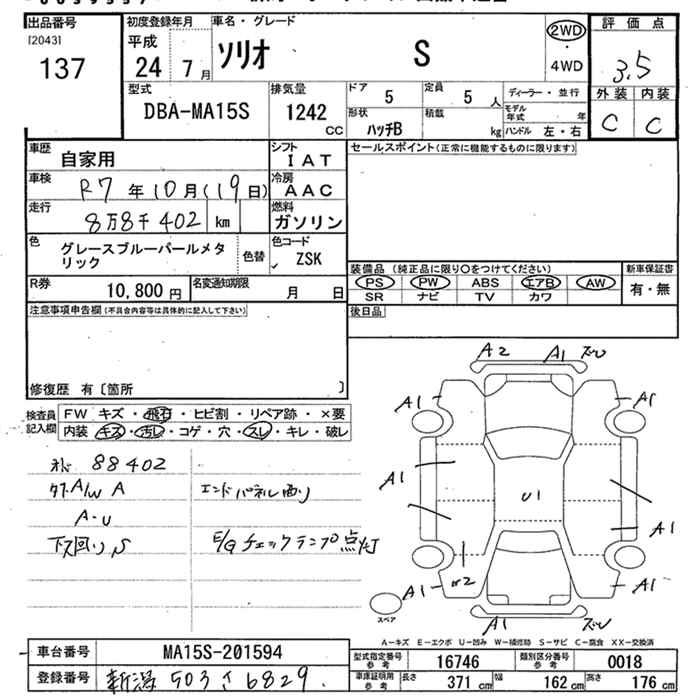 出品番号
[2043]
137
初度登録年月
平成
24 7 月
車名・グレード
ソリオ S
2WD
・
4WD
評価点
3.5
外装 内装
C C
型式
DBA-MA15S
排気量
1242
CC
ドア
5
定員
5 人
形状
ハッチB
積載
kg
ディーラー・並行
モデル年式 年
ハンドル 左・右
車歴
自家用
シフト
IAT
車検
R7 年 10 月 (19 日)
冷房
AAC
走行
8万8千402 km
燃料
ガソリン
色
グレースブルーパールメタ
リック
色替
色コード
ZSK
R券
10,800 円
名変通知期限
月 日
セールスポイント(正常に機能するものに限ります)
装備品 (純正品に限り○をつけてください)
PS PW ABS エアB AW
SR ナビ TV カワ
新車保証書
有・無
後日品
注意事項申告欄(不具合内容等は具体的に記入して下さい)
修復歴 有〔箇所 〕
検査員
記入欄
FW キズ・飛石・ヒビ割・リペア跡・×要
内装 キズ・汚レ・コゲ・穴・スレ・キレ・破レ
88402
A/W A
A・U
下廻り S
エンドパネル凹り
E/G チェックランプ点灯
A2 A1 ズレ
A1 A1
A1
U1
A1
A1 A1
A1 ズレ
スペア
A-キズ E-エクボ U-凹み W-補修跡 S-サビ C-腐食 XX-交換済
車台番号
MA15S-201594
登録番号
新潟 503 さ 6829
型式指定番号
参考
16746
類別区分番号
参考
0018
車庫証明用
参考
長さ
371 cm
幅
162 cm
高さ
176 cm